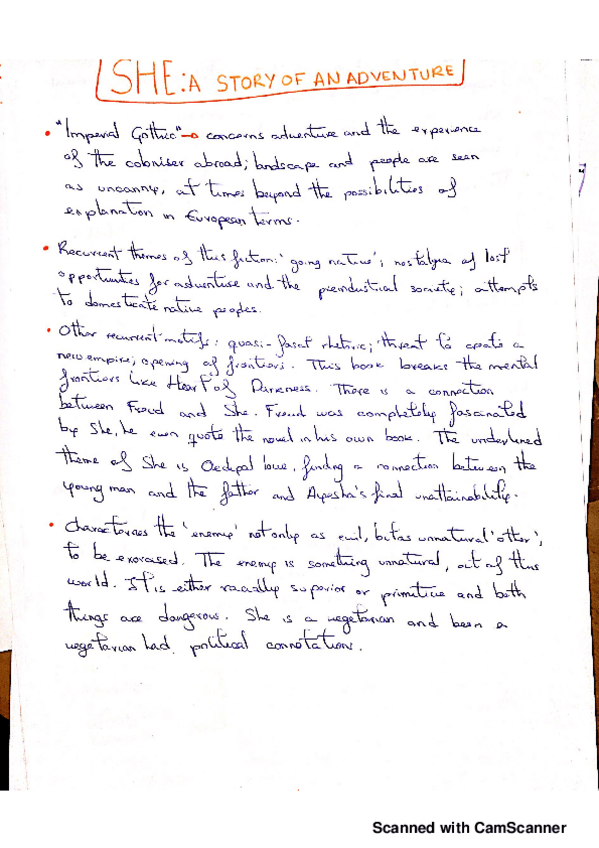 SHE: A STORY OF AN ADVENTURE
• "Imperial Gothic" → concerns adventure and the experience
of the coloniser abroad; landscape and people are seen
as uncanny, at times beyond the possibilities of
explanation in European terms.
• Recurrent themes of this fiction: 'going native'; nostalgia of lost
opportunities for adventure and the preindustrial societie; attempts
to domesticate native peoples.
• Other recurrent motifs: quasi-fascist rhetoric; threat to create a
new empire; opening of frontiers. This book breaks the mental
frontiers like Heart of Darkness. There is a connection
between Freud and She. Freud was completely fascinated
by She, he even quote the novel in his own book. The underlined
theme of She is Oedipal love, finding a connection between the
young man and the father and Ayesha's final unattainability.
• Characterizes the 'enemy' not only as evil, but as unnatural 'other',
to be exorcised. The enemy is something unnatural, out of this
world. It is either racially superior or primitive and both
things are dangerous. She is a vegetarian and been a
vegetarian had political connotations.
Scanned with CamScanner